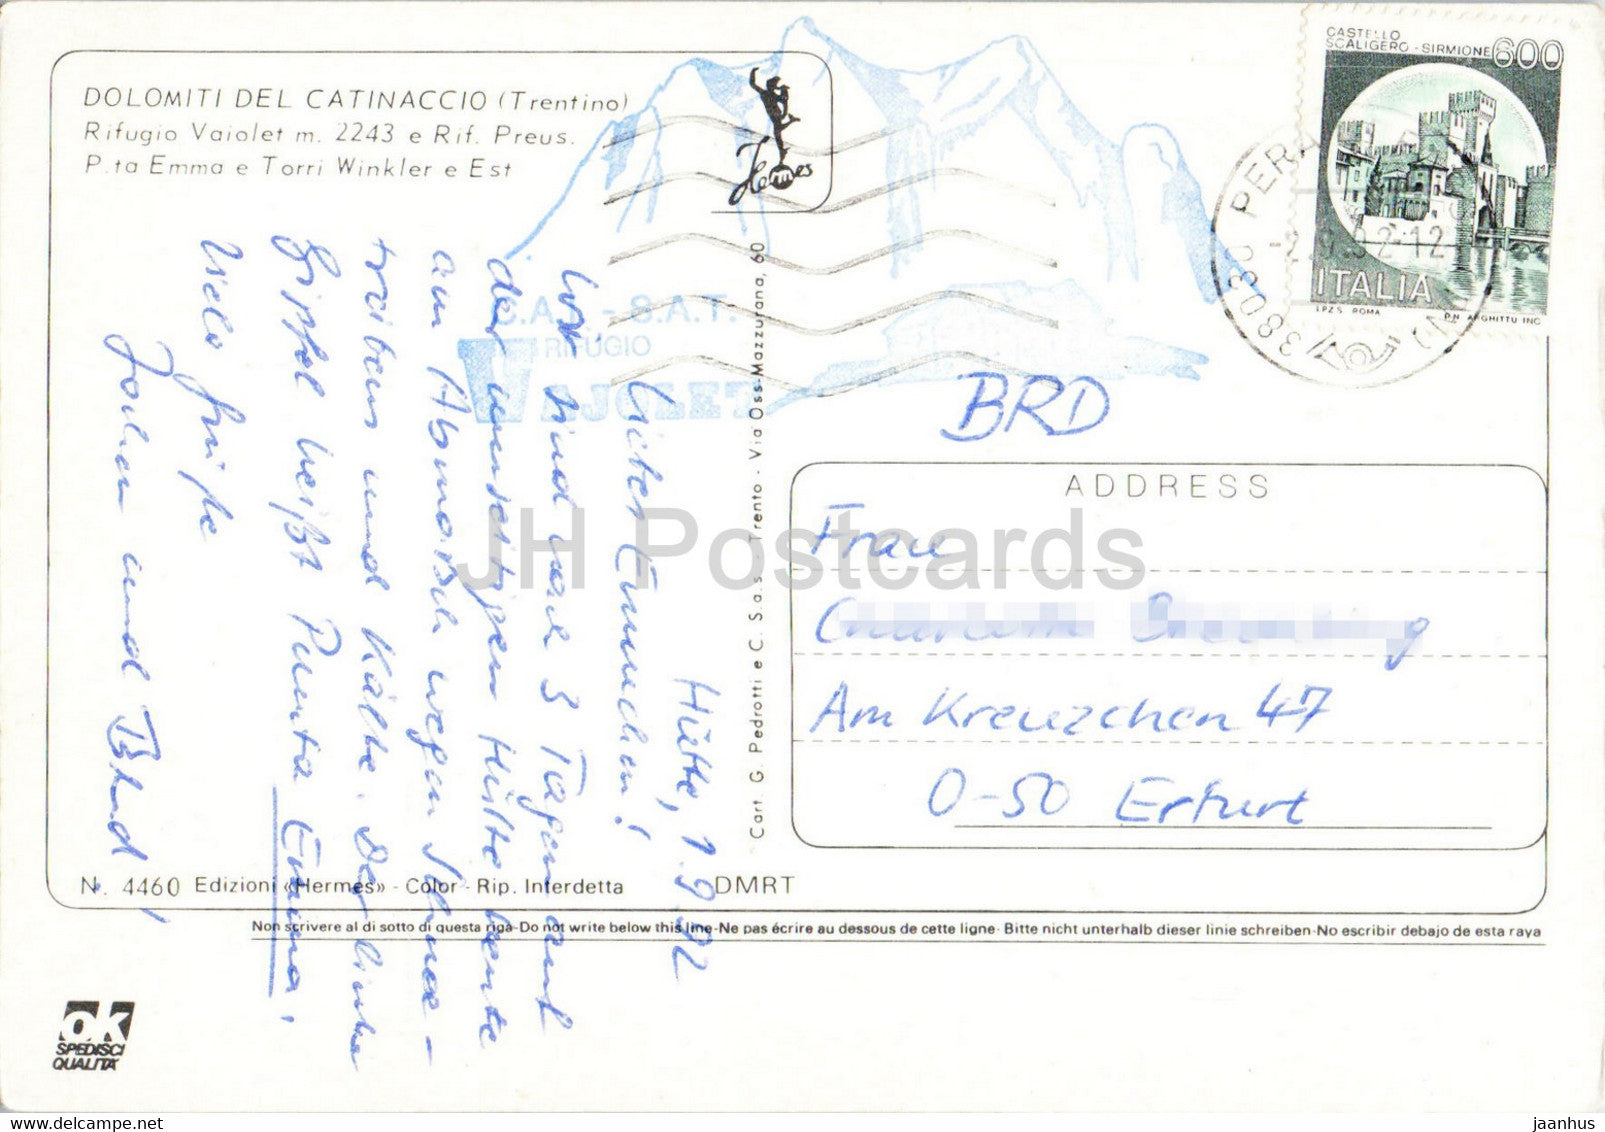 DOLOMITI DEL CATINACCIO (Trentino)
Rifugio Vaiolet m. 2243 e Rif. Preus.
P.ta Emma e Torri Winkler e Est
Hermes
CASTELLO
SCALIGERO - SIRMIONE 600
ITALIA
I.P.Z.S. ROMA
38030 PERA
.9.92-12
(TN)
C.A.I. - S.A.T.
RIFUGIO
VAJOLET
BRD
ADDRESS
Frau
Am Kreuzchen 47
O-50 Erfurt
Hütte, 1.9.92
Liebes Emmchen!
Wir sind seit 3 Tagen auf
der hiesigen Hütte heute
am Abmarsch wegen Schnee-
treiben und Kälte. Der linke
Gipfel heißt Punta Emma!
Viele Grüße
Jochen und Bernd
Cart. G. Pedrotti e C. S.a.s. - Trento - Via Oss-Mazzurana, 60
N. 4460 Edizioni «Hermes» - Color - Rip. Interdetta
DMRT
Non scrivere al di sotto di questa riga-Do not write below this line-Ne pas écrire au dessous de cette ligne-Bitte nicht unterhalb dieser linie schreiben-No escribir debajo de esta raya
ok
SPEDISCI
QUALITA'
JH Postcards
www.delcampe.net
jaanhus